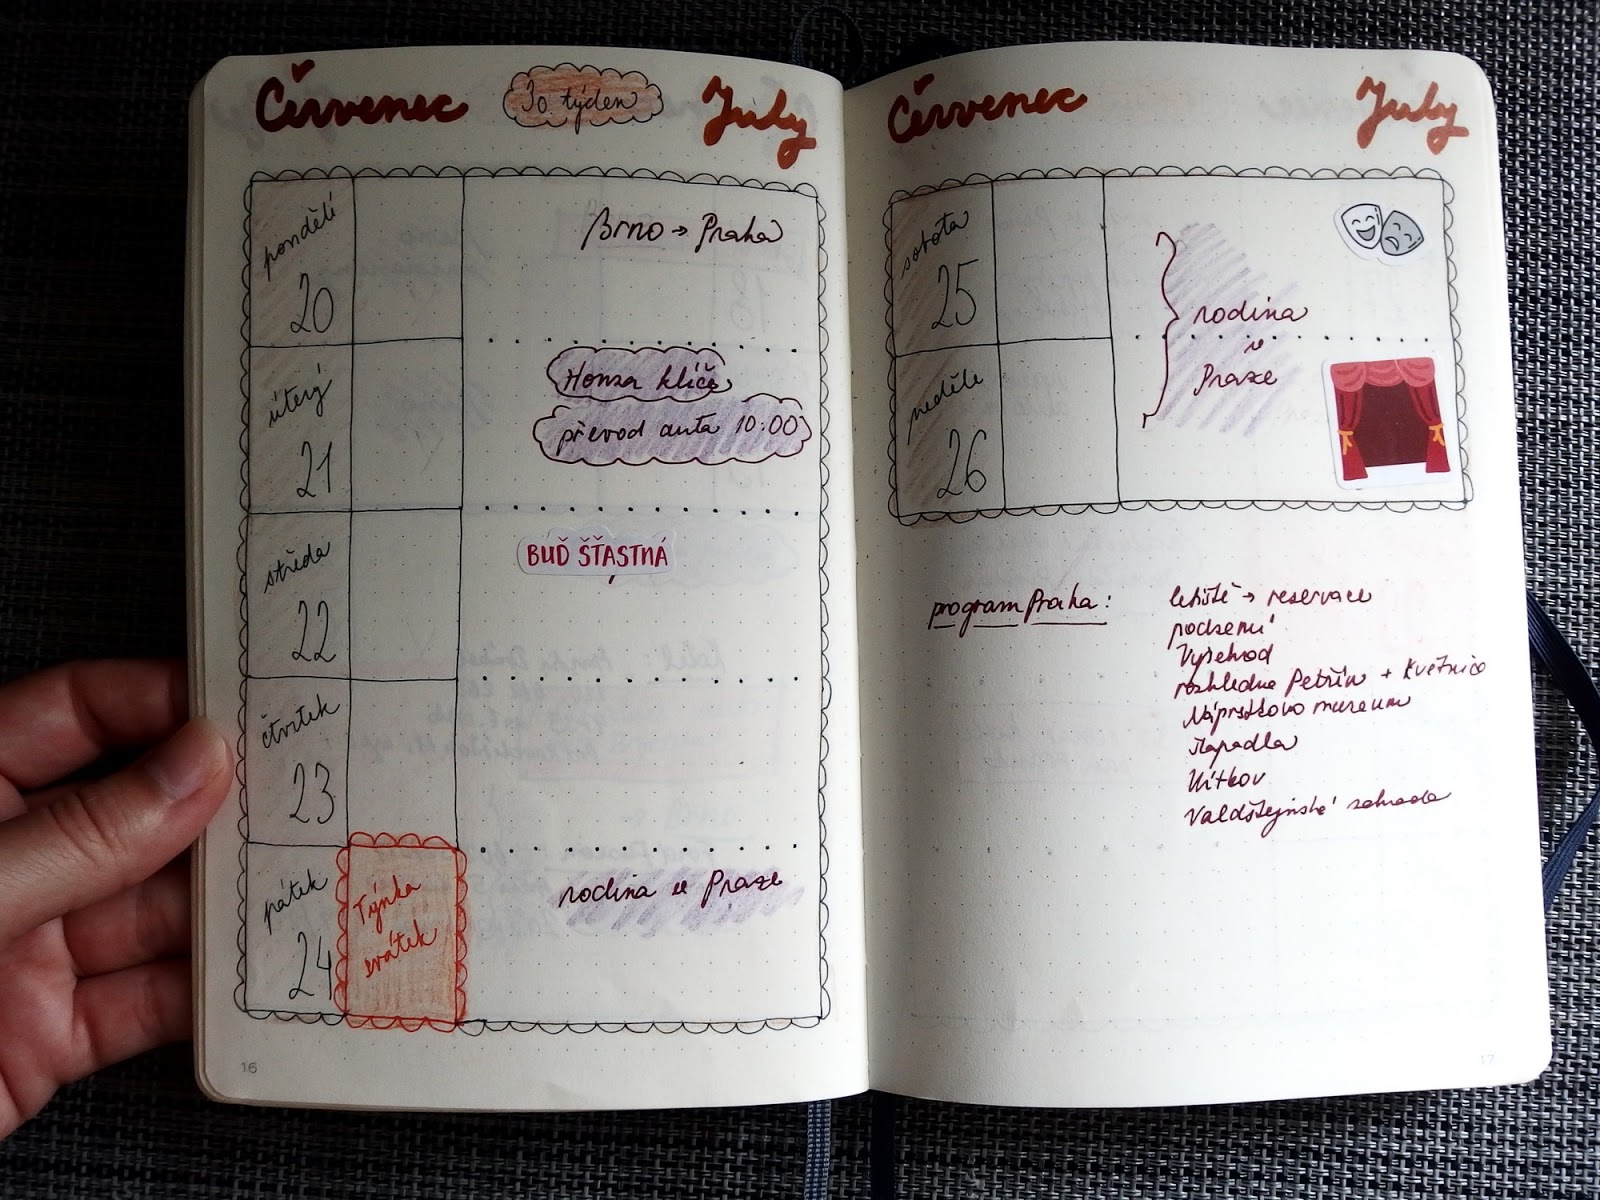 Červenec
30 týden
July
pondělí
20
Brno → Praha
úterý
21
Honza klíče
převod auta 10:00
středa
22
BUĎ ŠŤASTNÁ
čtvrtek
23
pátek
24
Týnka
svátek
rodina v Praze
16
Červenec
July
sobota
25
rodina
v
Praze
neděle
26
program Praha:
letiště → reservace
podzemí
Vyšehrad
rozhledna Petřín + Květnice
Náprstkovo muzeum
Vítkov
Valdštejnská zahrada
17